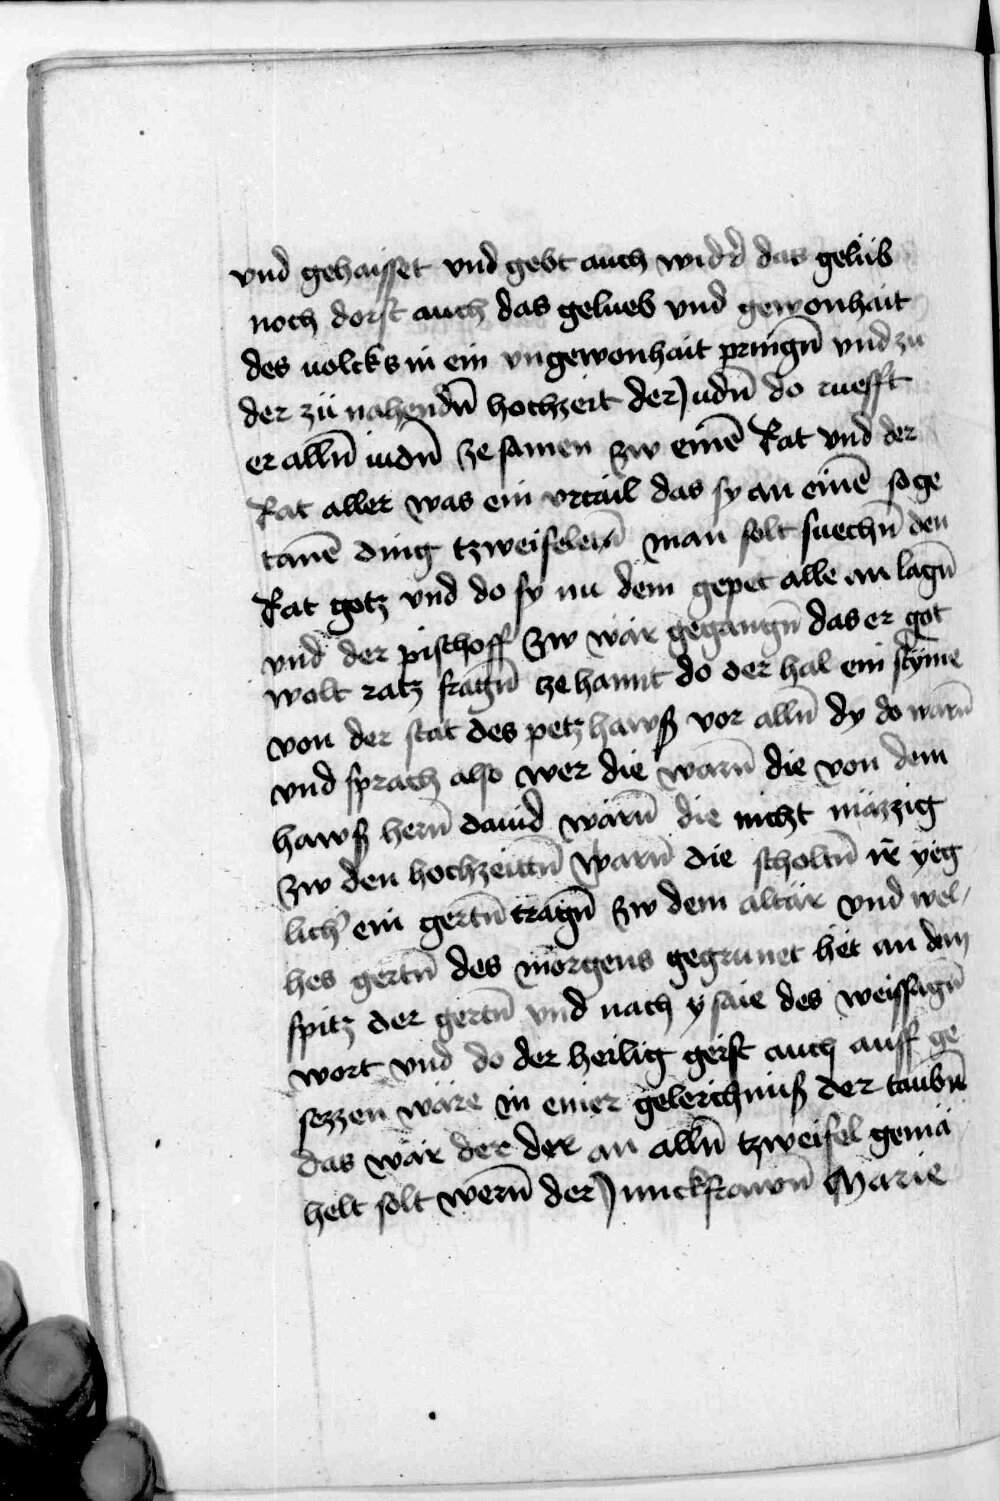 vnd gehaisset vnd gebt auch widᵈ das gelüb
noch dorft auch das gelueb vnd gewonhait
des uolcks in ein vngewonhait pringn̄ vnd zu
der zü nahendn̄ hochzeit der Judn̄ do rüefft
er alln̄ iudn̄ ze samen zw einē Rat vnd der
Rat aller was ein vrtail das sy an einē so ge
tanē ding tzweifeletn̄ man solt suechn̄ den
Rat gotz vnd do sy nu dem gepet alle an lagn̄
vnd der pischoff zw wär gegangn̄ das er got
wolt ratz fragn̄ ze hannt do der hal ein styme
von der stat des petz hawß vor alln̄ dy do warn̄
vnd sprach also wer die warn̄ die von dem
hawß hern̄ dauid wärn̄ die nicht mäzzig
zw den hochzeittn̄ warn̄ die scholtn̄ ir yeg
lich̄ ein gertn̄ tragn̄ zw dem altär vnd wel/
hes gertn̄ des morgens gegrunet het an dem
spitz der gertn̄ vnd nach ysaie des weissagn̄
wort vnd do der heilig geist auch auff ge
sezzen wäre in einer geleichnuß der taubn̄
das wär der der an alln̄ tzweifel gemä
helt solt wern̄ der Junckfrawn̄ Marie